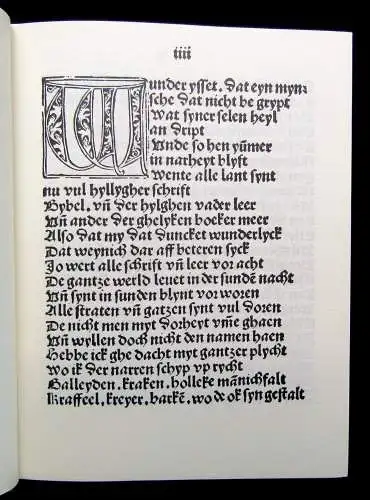 iiii
Wunder ysset. dat eyn myn⸗
sche dat nicht be grypt
Wat syner selen heyl
an dript
Unde so hen yũmer
in narheyt blyft
Wente alle lant synt
nu vul hyllygher schrift
Bybel. vñ der hylghen vader leer
Vñ ander der ghelyken boeker meer
Also dat my dat duncket wunderlyck
Dat weynich dar aff beteren syck
Jo wert alle schrift vñ leer vor acht
De gantze werld leuet in der sunden nacht
Vñ synt in sunden blynt vor woren
Alle straten vñ gatzen synt vul doren
De nicht men myt dorheyt vm̃e ghaen
Vñ wyllen doch nicht den namen haen
Hebbe ick ghe dacht myt gantzer plycht
Wo ik der narren schyp vp rycht
Galleyden. kraken. hollcke mãnichfalt
Kraffeel. kreyer. barkẽ. wo de ok syn gestalt